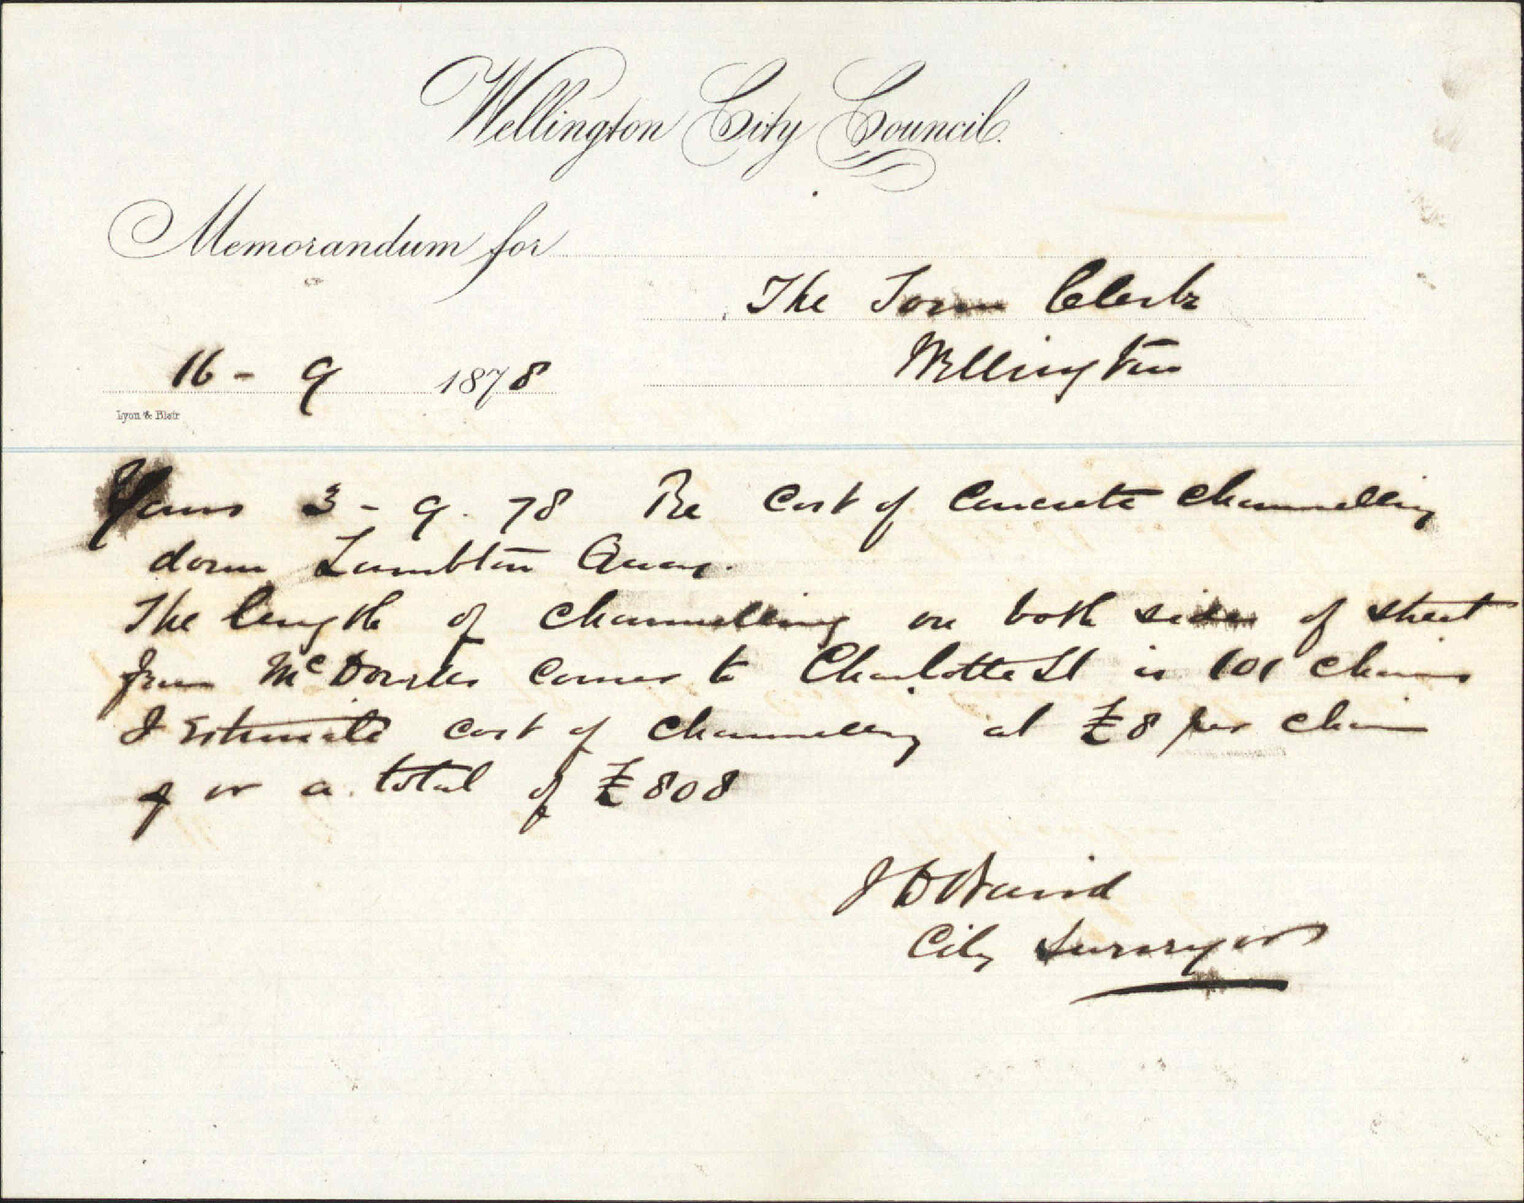 Wellington City Council.
Memorandum for
The Town Clerk
Wellington
16 - 9 1878
Lyon & Blair
Yours 3 - 9 - 78 Re Cost of Concrete Channelling
down Lambton Quay.
The length of Channelling on both sides of street
from Corner to Charlotte St is 101 chains
I Estimate cost of Channelling at £8 per chain
for a total of £808
J D Baird
City Surveyor